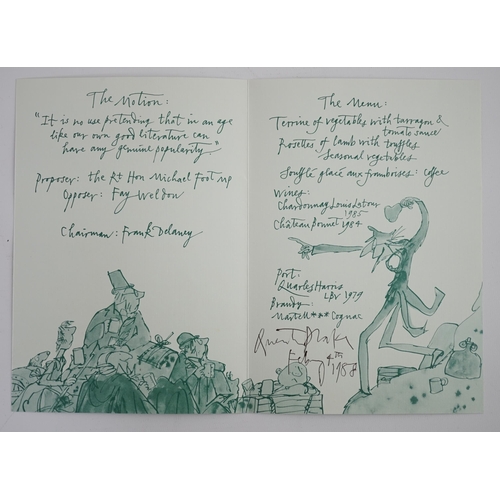 The Motion:
"It is no use pretending that in an age
like our own good literature can
have any genuine popularity"
Proposer: the Rt Hon Michael Foot MP
Opposer: Fay Weldon
Chairman: Frank Delaney
The Menu:
Terrine of vegetables with tarragon &
tomato sauce
Rosettes of lamb with truffles
Seasonal vegetables
Soufflé glacé aux framboises: coffee
Wines:
Chardonnay Louis Latour
1985
Château Bonnet 1984
Port:
Quarles Harris
LBV 1979
Brandy:
Martell*** Cognac
Quentin Blake
Feb 4th
1988